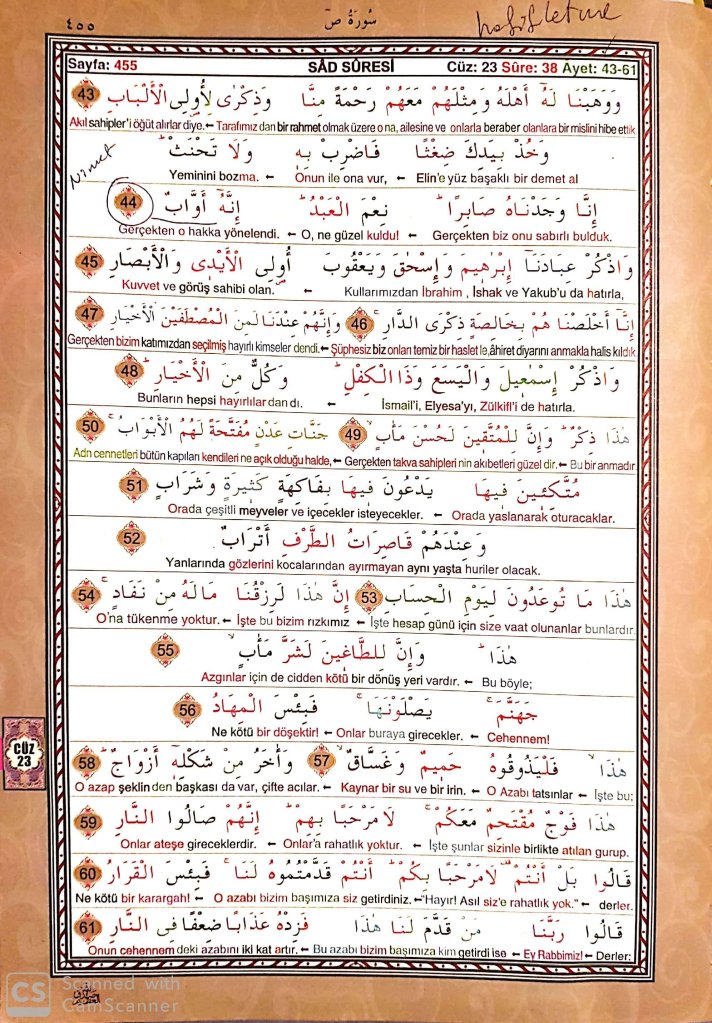 ٤٥٥ سُورَةُ صٓ hafifletme
Sayfa: 455 SÂD SÛRESİ Cüz: 23 Sûre: 38 Ayet: 43-61
وَوَهَبْنَا لَهُٓ اَهْلَهُ وَمِثْلَهُمْ مَعَهُمْ رَحْمَةً مِنَّا وَذِكْرٰى لِاُولِى الْاَلْبَابِ 43
Akıl sahipler'i öğüt alırlar diye.← Tarafımızdan bir rahmet olmak üzere ona, ailesine ve onlarla beraber olanlara bir mislini hibe ettik
وَخُذْ بِيَدِكَ ضِغْثًا فَاضْرِبْ بِهِ وَلَا تَحْنَثْ
Yeminini bozma. ← Onun ile ona vur, ← Elin'e yüz başaklı bir demet al
اِنَّا وَجَدْنَاهُ صَابِرًا نِعْمَ الْعَبْدُ اِنَّهُٓ اَوَّابٌ 44
Gerçekten o hakka yönelendi. ← O, ne güzel kuldu! ← Gerçekten biz onu sabırlı bulduk.
وَاذْكُرْ عِبَادَنَٓا اِبْرٰهِيمَ وَاِسْحٰقَ وَيَعْقُوبَ اُولِى الْاَيْدِى وَالْاَبْصَارِ 45
Kuvvet ve görüş sahibi olan. ← Kullarımızdan İbrahim , İshak ve Yakub'u da hatırla,
اِنَّٓا اَخْلَصْنَا هُمْ بِخَالِصَةٍ ذِكْرَى الدَّارِ 46 وَاِنَّهُمْ عِنْدَنَا لَمِنَ الْمُصْطَفَيْنَ الْاَخْيَارِ 47
Gerçekten bizim katımızdan seçilmiş hayırlı kimseler dendi.← Şüphesiz biz onları temiz bir haslet le,âhiret diyarını anmakla halis kıldık
وَاذْكُرْ اِسْمٰعِيلَ وَالْيَسَعَ وَذَا الْكِفْلِ وَكُلٌّ مِنَ الْاَخْيَارِ 48
Bunların hepsi hayırlılar dan dı. ← İsmail'i, Elyesa'yı, Zülkifl'i de hatırla.
هٰذَا ذِكْرٌ وَاِنَّ لِلْمُتَّقِينَ لَحُسْنَ مَاٰبٍ 49 جَنَّاتِ عَدْنٍ مُفَتَّحَةً لَهُمُ الْاَبْوَابُ 50
Adn cennetleri bütün kapıları kendileri ne açık olduğu halde,← Gerçekten takva sahipleri nin akıbetleri güzel dir. ← Bu bir anmadır.
مُتَّكِئِينَ فِيهَا يَدْعُونَ فِيهَا بِفَاكِهَةٍ كَثِيرَةٍ وَشَرَابٍ 51
Orada çeşitli meyveler ve içecekler isteyecekler. ← Orada yaslanarak oturacaklar.
وَعِنْدَهُمْ قَاصِرَاتُ الطَّرْفِ اَتْرَابٌ 52
Yanlarında gözlerini kocalarından ayırmayan aynı yaşta huriler olacak.
هٰذَا مَا تُوعَدُونَ لِيَوْمِ الْحِسَابِ 53 اِنَّ هٰذَا لَرِزْقُنَا مَالَهُ مِنْ نَفَادٍ 54
O'na tükenme yoktur. ← İşte bu bizim rızkımız ← İşte hesap günü için size vaat olunanlar bunlardır.
هٰذَا وَاِنَّ لِلطَّاغِينَ لَشَرَّ مَاٰبٍ 55
Azgınlar için de cidden kötü bir dönüş yeri vardır. ← Bu böyle;
جَهَنَّمَ يَصْلَوْنَهَا فَبِئْسَ الْمِهَادُ 56
Ne kötü bir döşektir! ← Onlar buraya girecekler. ← Cehennem!
هٰذَا فَلْيَذُوقُوهُ حَمِيمٌ وَغَسَّاقٌ 57 وَاٰخَرُ مِنْ شَكْلِهِٓ اَزْوَاجٌ 58
O azap şeklin den başkası da var, çifte acılar. ← Kaynar bir su ve bir irin. ← O Azabı tatsınlar ← İşte bu;
هٰذَا فَوْجٌ مُقْتَحِمٌ مَعَكُمْ لَا مَرْحَبًا بِهِمْ اِنَّهُمْ صَالُوا النَّارِ 59
Onlar ateşe gireceklerdir. ← Onlar'a rahatlık yoktur. ← İşte şunlar sizinle birlikte atılan gurup.
قَالُوا بَلْ اَنْتُمْ لَا مَرْحَبًا بِكُمْ اَنْتُمْ قَدَّمْتُمُوهُ لَنَا فَبِئْسَ الْقَرَارُ 60
Ne kötü bir karargah! ← O azabı bizim başımıza siz getirdiniz. ←"Hayır! Asıl siz'e rahatlık yok." ← derler.
قَالُوا رَبَّنَا مَنْ قَدَّمَ لَنَا هٰذَا فَزِدْهُ عَذَابًا ضِعْفًا فِى النَّارِ 61
Onun cehennem deki azabını iki kat artır, ← Bu azabı bizim başımıza kim getirdi ise ← Ey Rabbimiz! ← Derler:
CÜZ
23
CS Scanned with
CamScanner